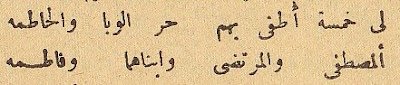 لى خمسة أطفى بهم حر الوبا والحاطمه
ألمصطفى والمرتضى وابناهما وفاطمه